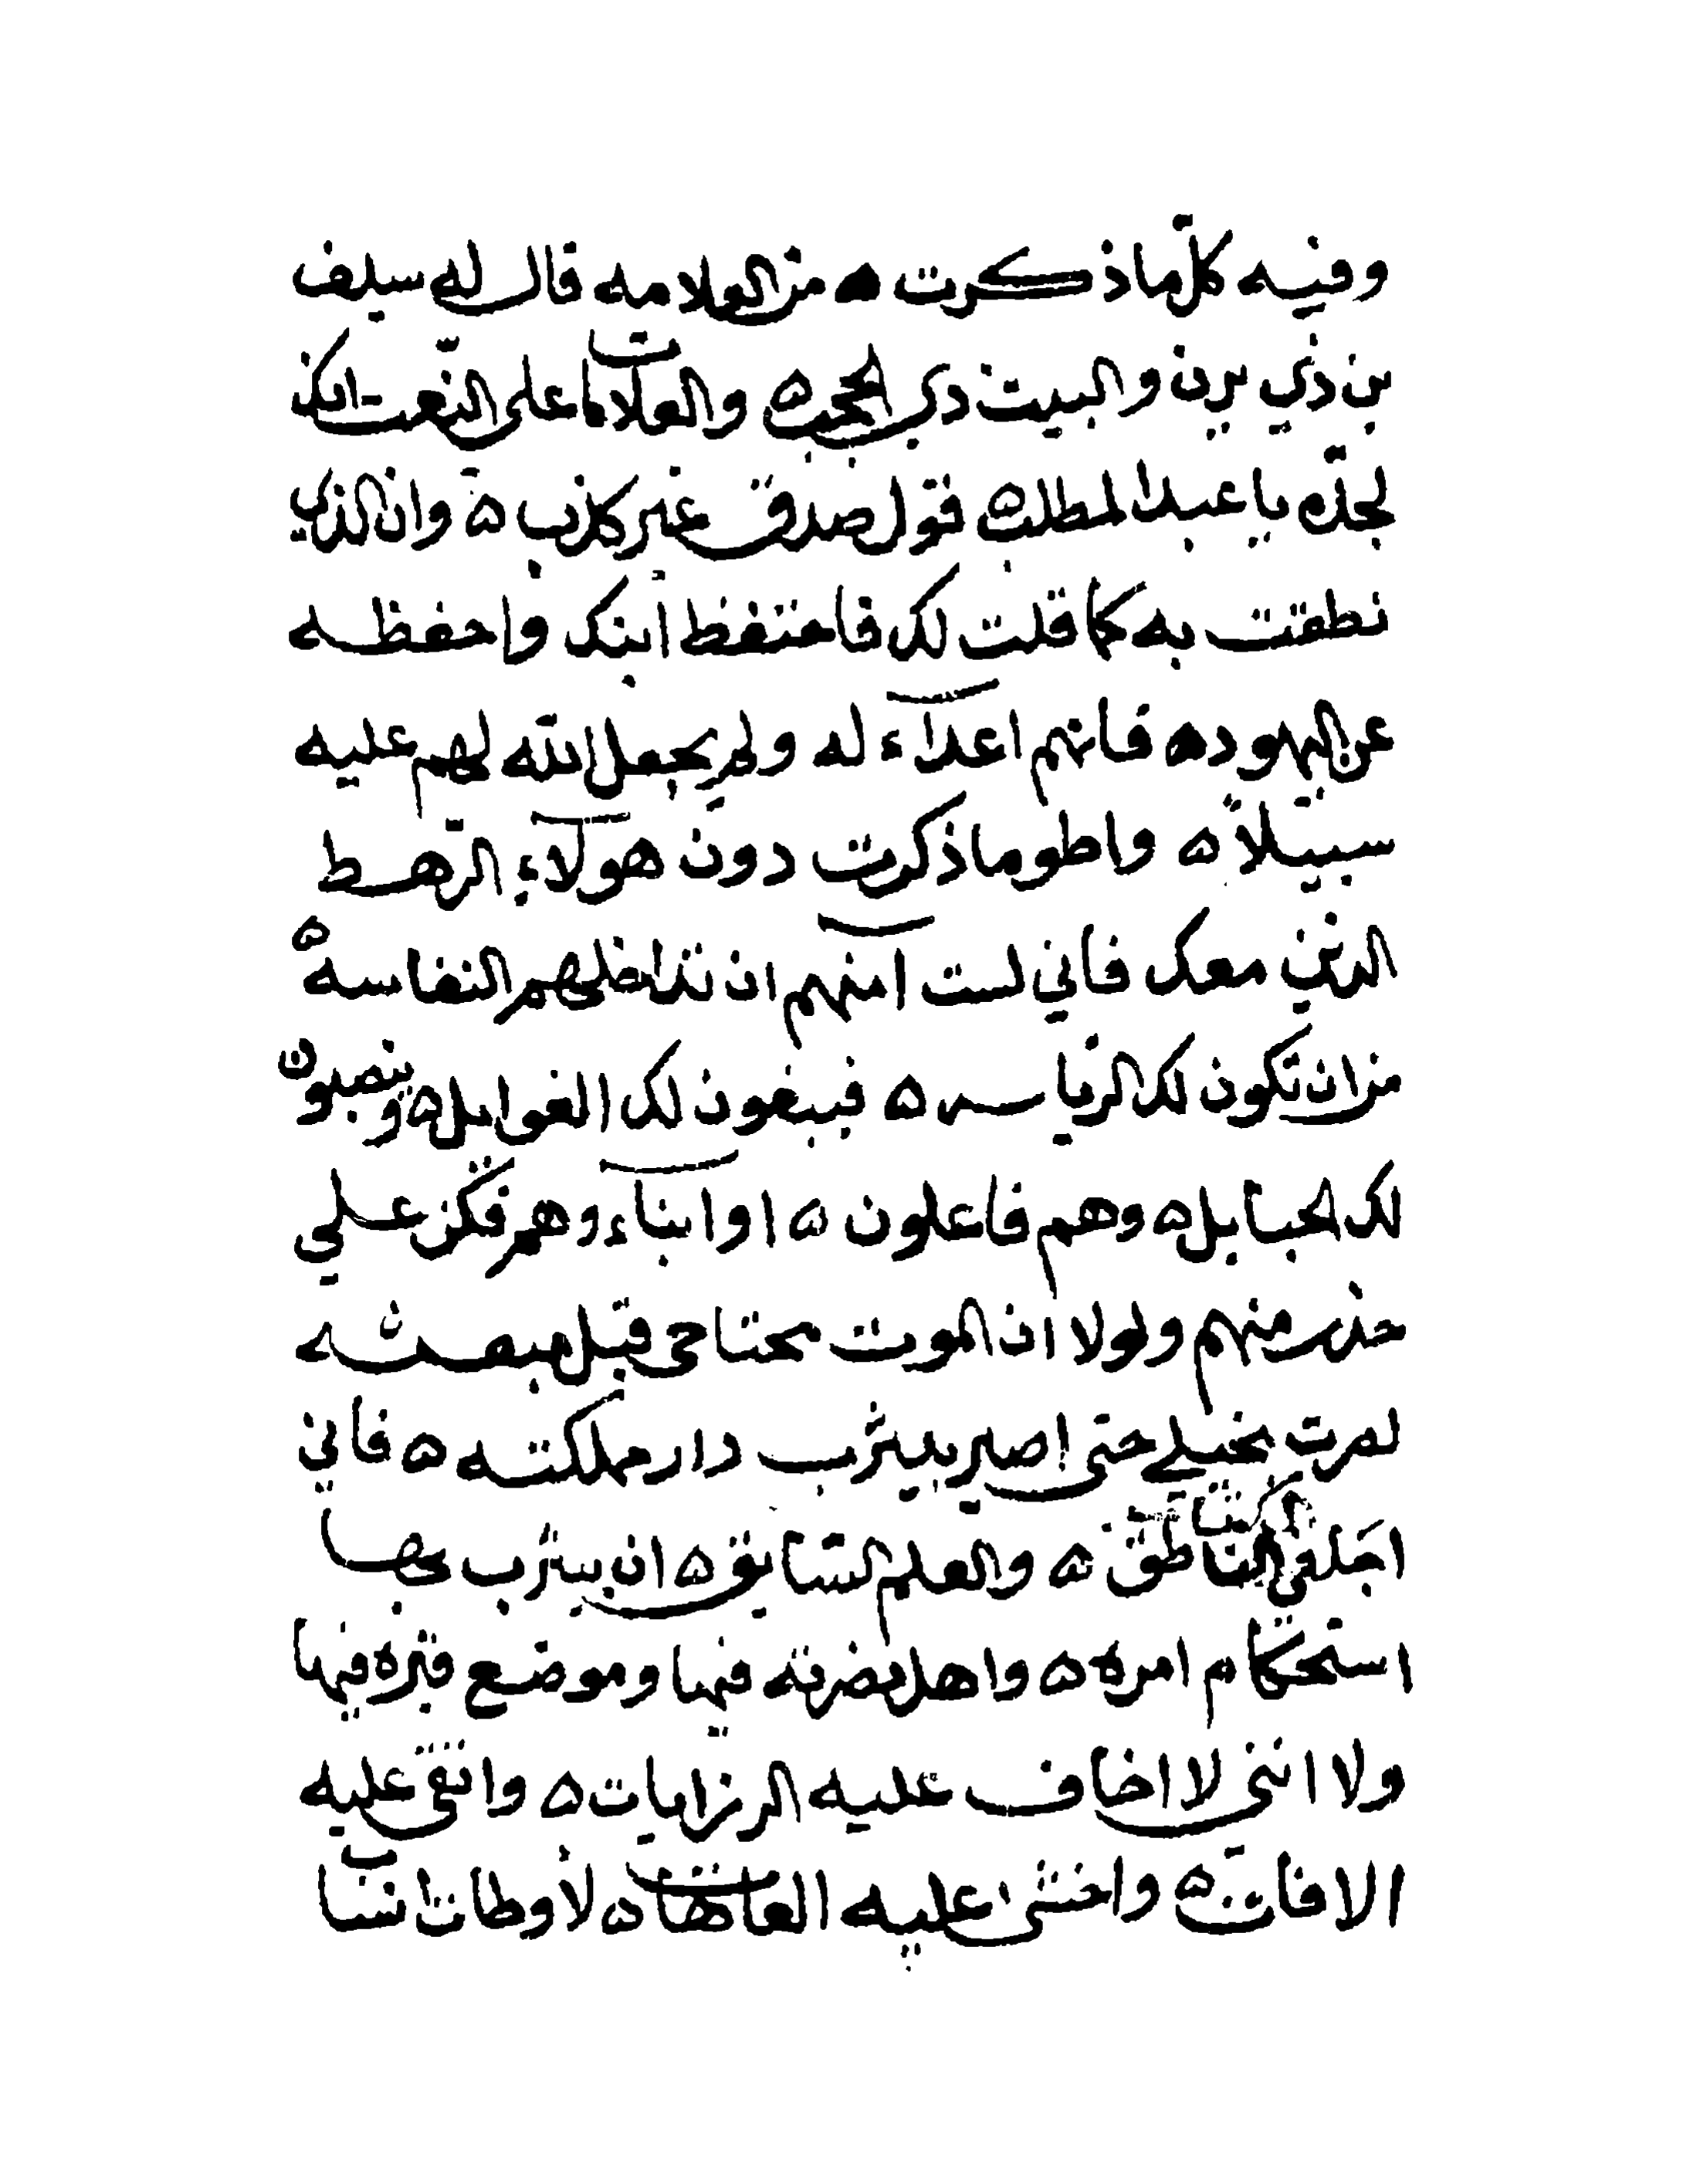 وفيه كلّ ما ذكرت ه من العلامه قال له سيف
بن ذي يزن والبيت ذي الحجب ه والعلامات على النّعت انك
لجدّه يا عبد المطلب ه قول صدق غير كذب ه وان الذي
نطقت به كما قلت لك فاحتفظ ابنك واحفظه
عن اليهود ه فانهم اعدآء له ولم يجعل الله لهم عليه
سبيلاً ه واطو ما ذكرت دون هولآء الرّهط
الذين معك فاني لست آمنهم ان تداخلهم النفاسه ه
من ان تكون لك الرياسه ه فيبغون لك الغوايل ه وينصبون
لك الحبايل ه وهم فاعلون ه او ابنآءوهم فكن على
حذر منهم ولولا ان الموت مجتاحي قبل مبعثه
لسرت بخيلي حتى اصير بيثرب دار مملكته ه فاني
اجد في الكتاب الناطق ه والعلم السّابق ه ان بيثرب بها
استحكام امره ه واهل نصرته فيها وموضع قبره فيها
ولا انني لا اخاف عليه الرزايات ه واتقي عليه
الافات ه واخشى عليه العاهات ه لأوطات انساب